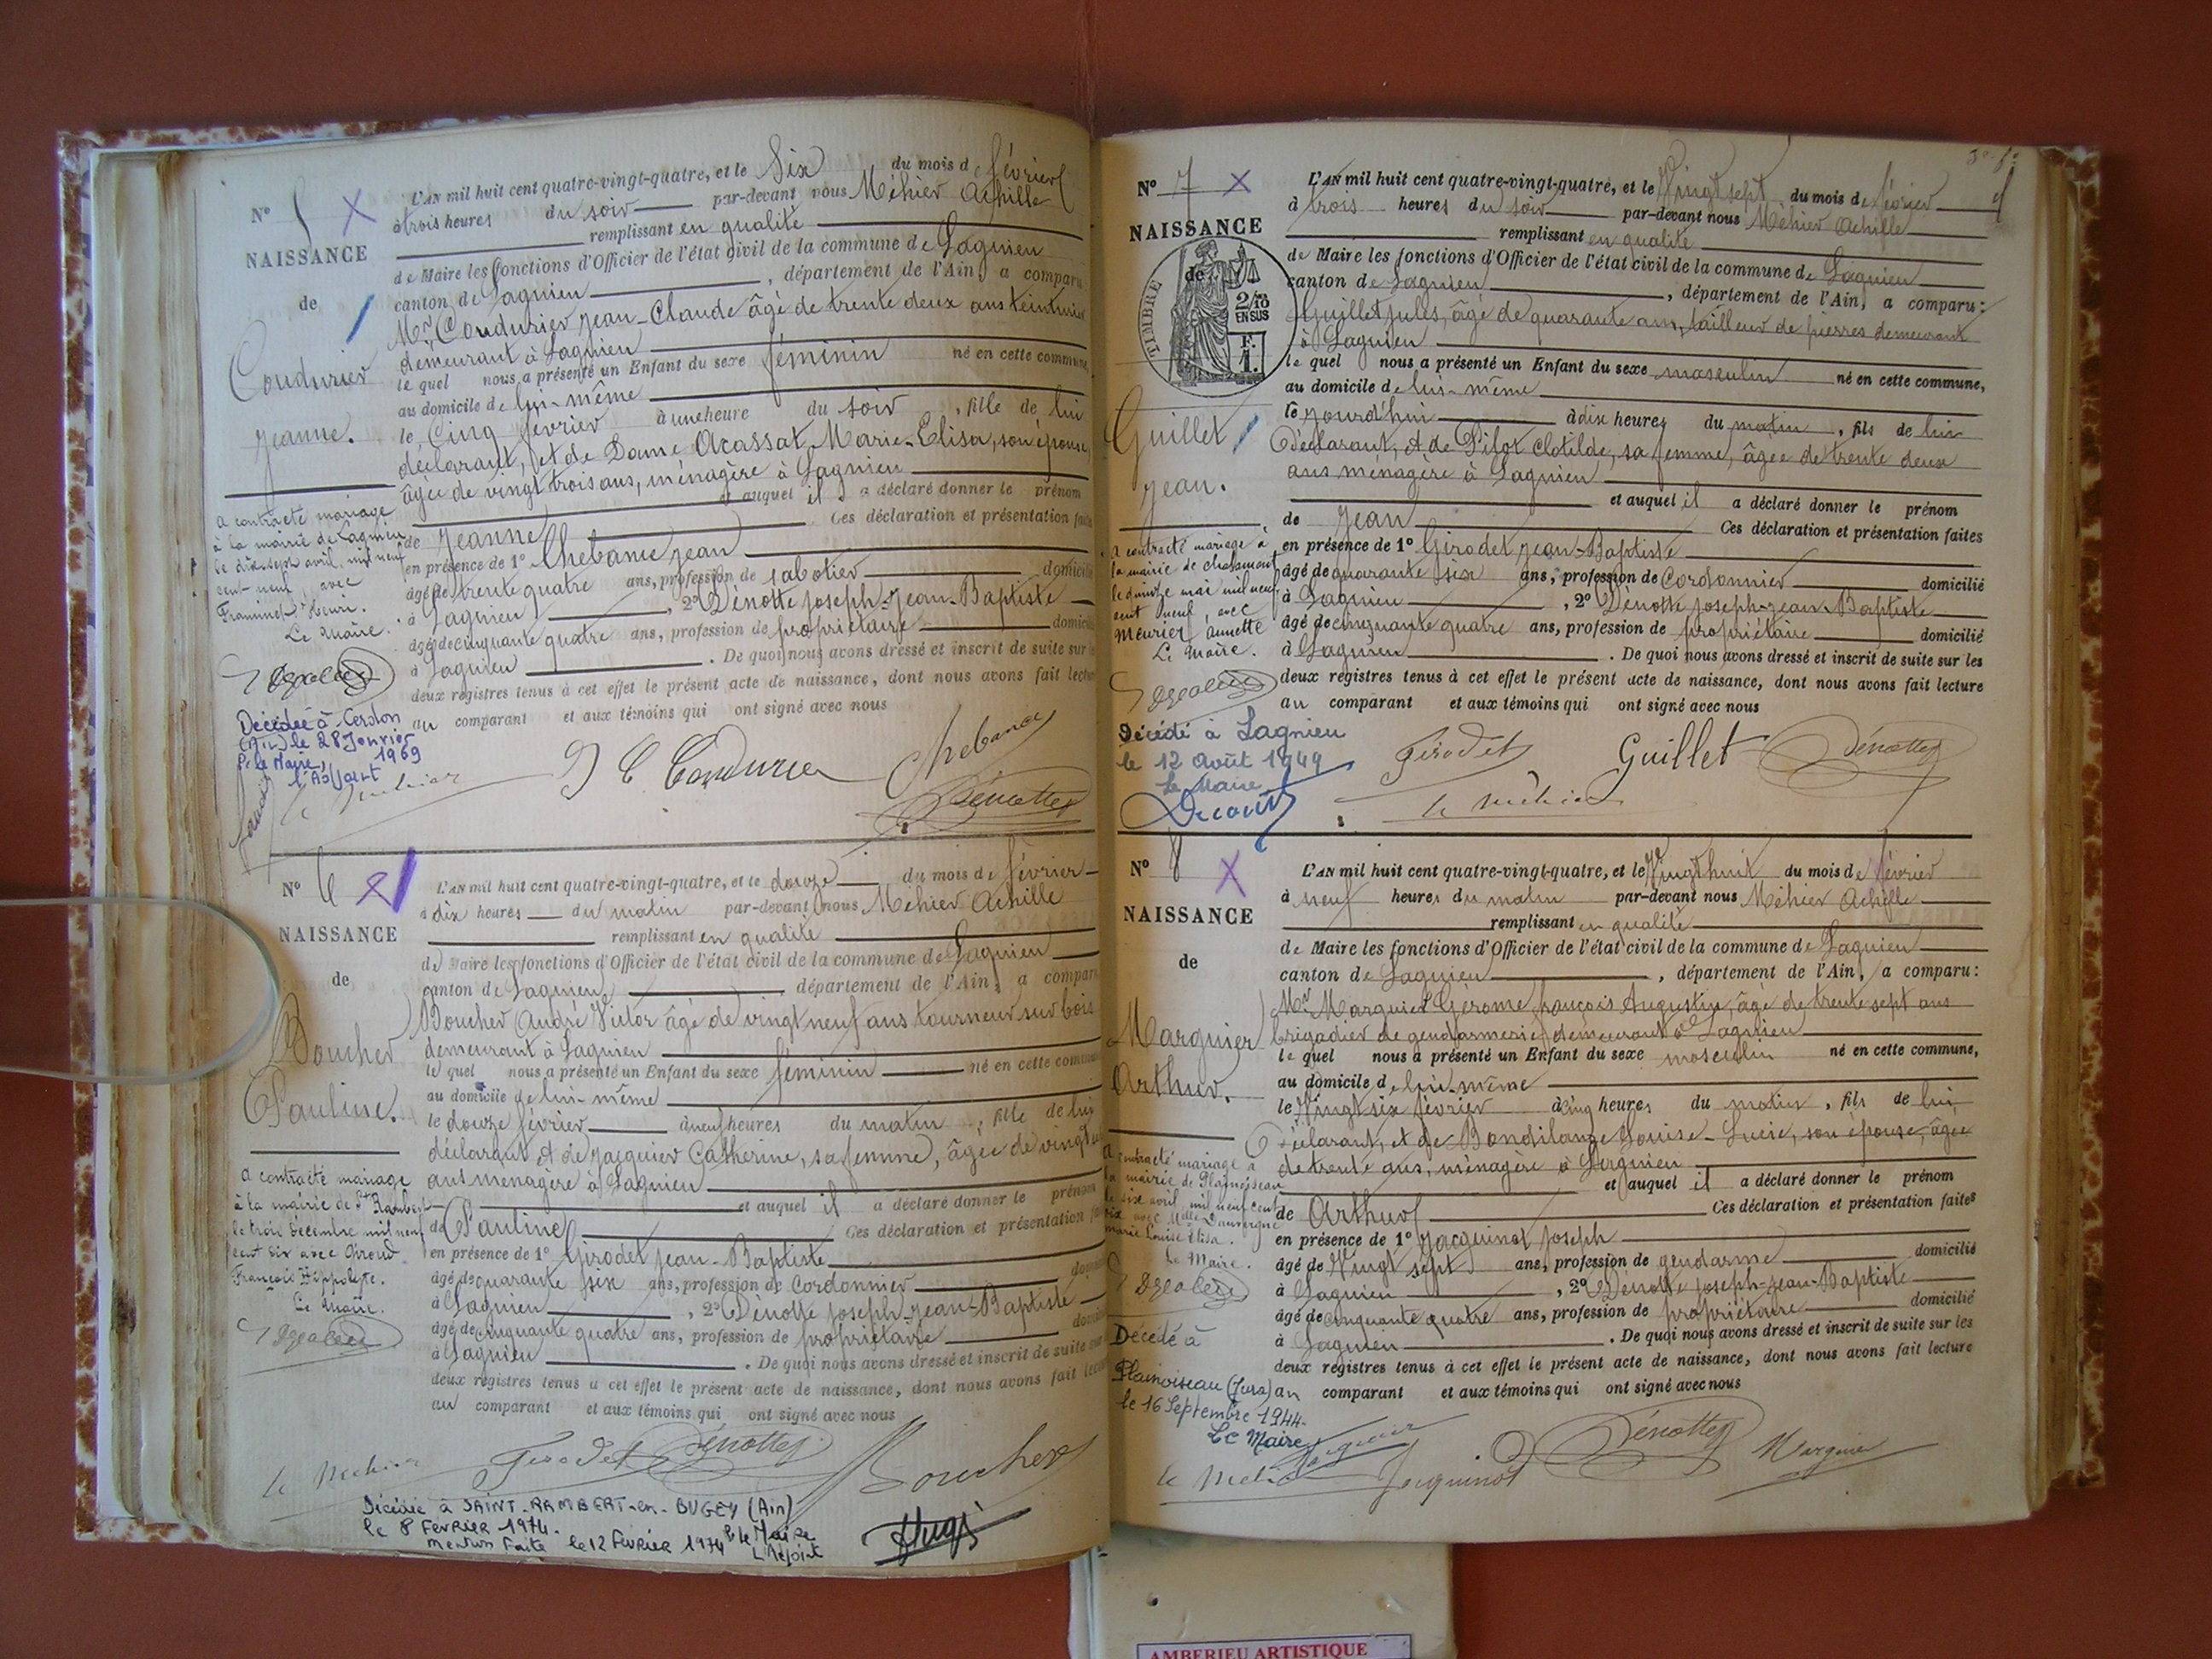 N° 5 X
NAISSANCE
de
Coudurier
Jeanne.
L'AN mil huit cent quatre-vingt-quatre, et le Six du mois de février
à trois heures du soir par-devant nous Méhier Achille
remplissant en qualité
de Maire les fonctions d'Officier de l'état civil de la commune de Lagnieu
canton de Lagnieu, département de l'Ain, a comparu
Mr Coudurier Jean-Claude âgé de trente deux ans teinturier
demeurant à Lagnieu
le quel nous a présenté un Enfant du sexe féminin né en cette commune,
au domicile de lui-même
le Cinq février à une heure du soir, fille de lui
déclarant, et de Dame Acassat Marie-Elisa, son épouse,
âgée de vingt trois ans, ménagère à Lagnieu
et auquel il a déclaré donner le prénom
de Jeanne Ces déclaration et présentation faites
en présence de 1° Chebance Jean
âgé de trente quatre ans, profession de sabotier domicilié
à Lagnieu, 2° Dénotte Joseph-Jean-Baptiste
âgé de cinquante quatre ans, profession de propriétaire domicilié
à Lagnieu. De quoi nous avons dressé et inscrit de suite sur les
deux registres tenus à cet effet le présent acte de naissance, dont nous avons fait lecture
au comparant et aux témoins qui ont signé avec nous
A contracté mariage
à la mairie de Lagnieu
le dix-sept avril mil neuf
cent-neuf, avec
Henri.
Le Maire.
Décédée à Cerdon
(Ain) le 28 Janvier
1969
P. le Maire,
l'Adjoint
le Méhier J C Coudurier Chebance
Dénotte
N° 6
NAISSANCE
de
Boucher
Pauline.
L'AN mil huit cent quatre-vingt-quatre, et le douze du mois de février
à dix heures du matin par-devant nous Méhier Achille
remplissant en qualité
de Maire les fonctions d'Officier de l'état civil de la commune de Lagnieu
canton de Lagnieu, département de l'Ain, a comparu
Boucher André Victor âgé de vingt neuf ans tourneur sur bois
demeurant à Lagnieu
le quel nous a présenté un Enfant du sexe féminin né en cette commune
au domicile de lui-même
le douze février à neuf heures du matin, fille de lui
déclarant et de Jacquier Catherine, sa femme, âgée de vingt
ans ménagère à Lagnieu
et auquel il a déclaré donner le prénom
de Pauline Ces déclaration et présentation
en présence de 1° Girodet Jean-Baptiste
âgé de quarante six ans, profession de Cordonnier
à Lagnieu, 2° Dénotte Joseph-Jean-Baptiste
âgé de cinquante quatre ans, profession de propriétaire
à Lagnieu. De quoi nous avons dressé et inscrit de suite sur
deux registres tenus à cet effet le présent acte de naissance, dont nous avons fait lecture
au comparant et aux témoins qui ont signé avec nous
A contracté mariage
à la mairie de St Rambert
le trois décembre mil neuf
cent six avec Giroud
François Hippolyte.
Le Maire.
le Méhier Girodet Dénotte Boucher
Décédée à SAINT-RAMBERT-en-BUGEY (Ain)
le 8 Février 1974.
mention faite le 12 Février 1974 P. le Maire
L'Adjoint
N° 7 X
NAISSANCE
de
TIMBRE
2/10
EN SUS
F.
1.
Guillet
Jean.
L'AN mil huit cent quatre-vingt-quatre, et le Vingt sept du mois de février
à trois heures du soir par-devant nous Méhier Achille
remplissant en qualité
de Maire les fonctions d'Officier de l'état civil de la commune de Lagnieu
canton de Lagnieu, département de l'Ain, a comparu:
Guillet Jules, âgé de quarante ans, tailleur de pierres demeurant
à Lagnieu
le quel nous a présenté un Enfant du sexe masculin né en cette commune,
au domicile de lui-même
le jourd'hui à dix heures du matin, fils de lui
déclarant, et de Pilot Clotilde, sa femme, âgée de trente deux
ans ménagère à Lagnieu
et auquel il a déclaré donner le prénom
de Jean Ces déclaration et présentation faites
en présence de 1° Girodet Jean-Baptiste
âgé de quarante six ans, profession de Cordonnier domicilié
à Lagnieu, 2° Dénotte Joseph-Jean-Baptiste
âgé de cinquante quatre ans, profession de propriétaire domicilié
à Lagnieu. De quoi nous avons dressé et inscrit de suite sur les
deux registres tenus à cet effet le présent acte de naissance, dont nous avons fait lecture
au comparant et aux témoins qui ont signé avec nous
A contracté mariage à
la mairie de Chalamont
le quinze mai mil neuf
cent neuf, avec
Meurier Annette
Le Maire.
Décédé à Lagnieu
le 12 Août 1949
Le Maire
Girodet Guillet Dénotte
le Méhier
N° 8 X
NAISSANCE
de
Marguier
Arthur.
L'AN mil huit cent quatre-vingt-quatre, et le Vingt huit du mois de février
à neuf heures du matin par-devant nous Méhier Achille
remplissant en qualité
de Maire les fonctions d'Officier de l'état civil de la commune de Lagnieu
canton de Lagnieu, département de l'Ain, a comparu:
Mr Marguier Gérome François Augustin, âgé de trente sept ans
brigadier de gendarmerie, demeurant à Lagnieu
le quel nous a présenté un Enfant du sexe masculin né en cette commune,
au domicile de lui-même
le Vingt six février à cinq heures du matin, fils de lui
déclarant, et de Bondilange Louise-Lucie, son épouse, âgée
de trente ans, ménagère à Lagnieu
et auquel il a déclaré donner le prénom
de Arthur Ces déclaration et présentation faites
en présence de 1° Jacquinot Joseph
âgé de Vingt sept ans, profession de gendarme domicilié
à Lagnieu, 2° Dénotte Joseph-Jean-Baptiste
âgé de cinquante quatre ans, profession de propriétaire domicilié
à Lagnieu. De quoi nous avons dressé et inscrit de suite sur les
deux registres tenus à cet effet le présent acte de naissance, dont nous avons fait lecture
au comparant et aux témoins qui ont signé avec nous
A contracté mariage à
la mairie de Plainoiseau
le six avril mil neuf cent
dix avec Mlle Dauvergne
Marie Louise Elisa.
Le Maire.
Décédé à
Plainoiseau (Jura)
le 16 Septembre 1944.
Le Maire
le Méhier Jacquinot Dénotte Marguier
AMBERIEU ARTISTIQUE